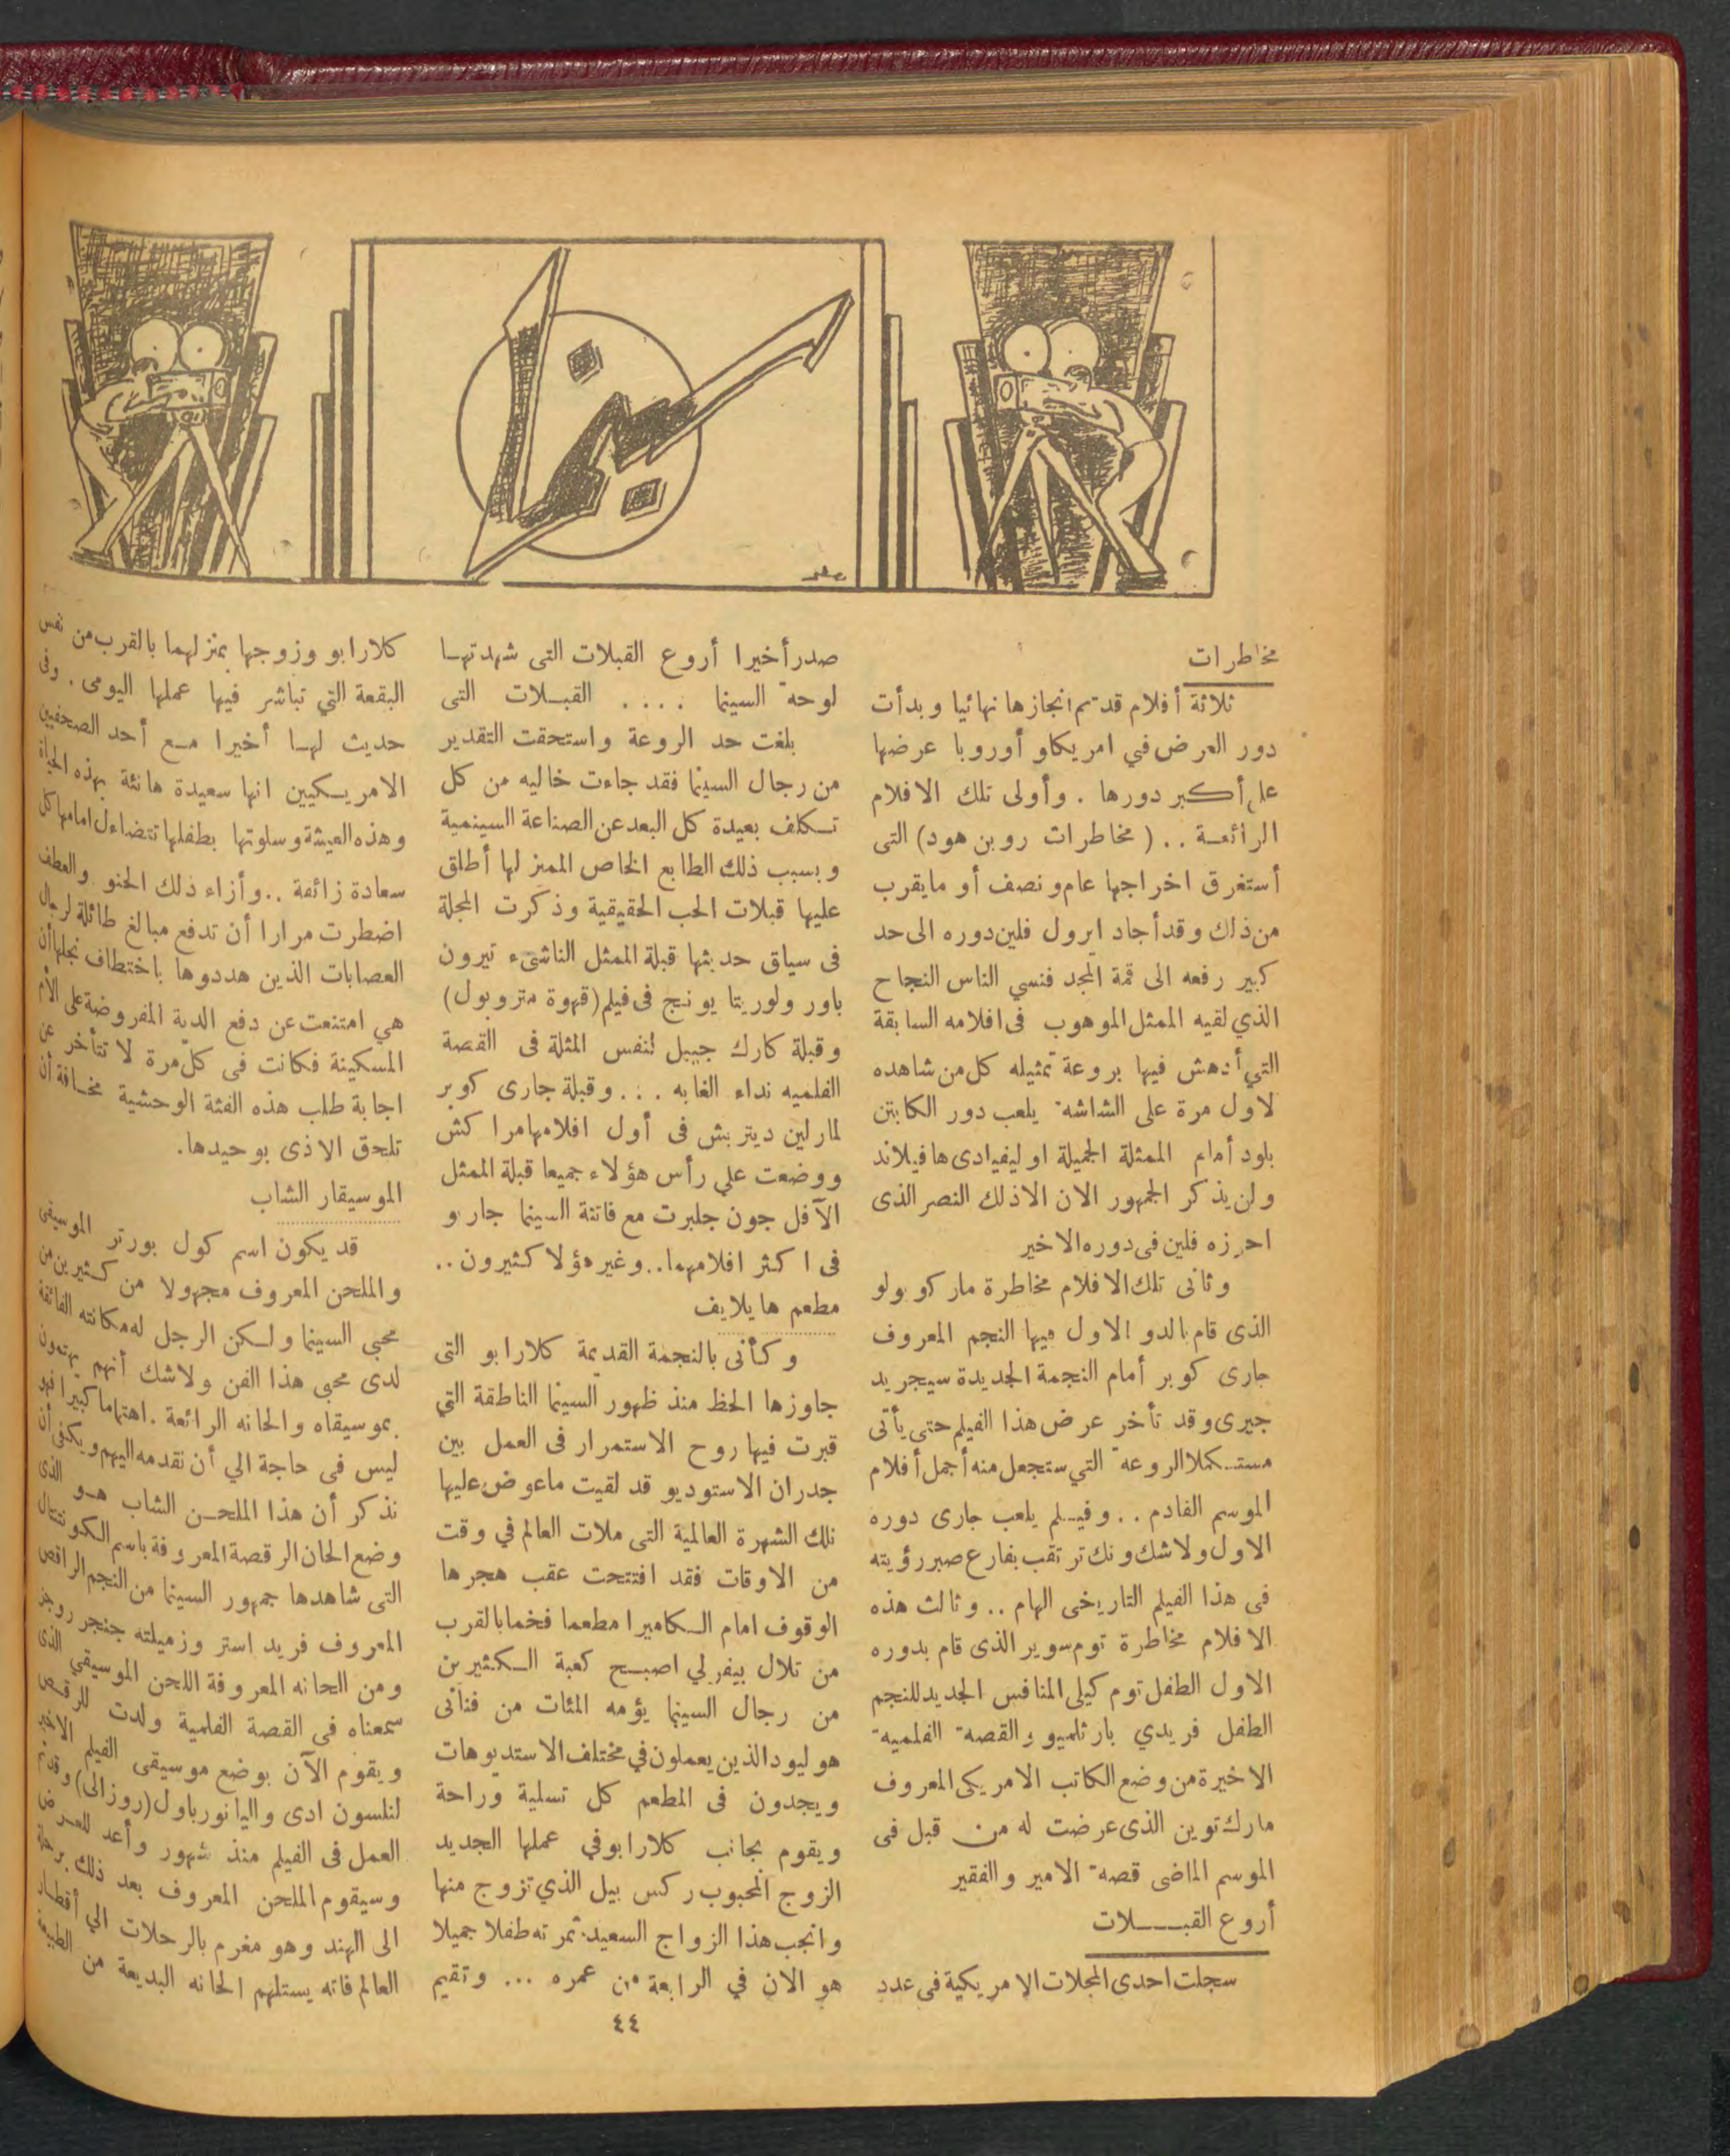 سينما
مخاطرات
ثلاثة أفلام قد تم انجازها نهائيا وبدأت
دور العرض في امريكا و أوروبا عرضها
على أكبر دورها . وأولى تلك الافلام
الرائعة .. ( مخاطرات روبن هود) التى
أستغرق اخراجها عام ونصف أو مايقرب
من ذلك وقد أجاد ايرول فلين دوره الى حد
كبير رفعه الى قمة المجد فنسي الناس النجاح
الذي لقيه الممثل الموهوب فى افلامه السابقة
التي أدهش فيها بروعة تمثيله كل من شاهده
لاول مرة على الشاشة يلعب دور الكابتن
بلود أمام الممثلة الجميلة اوليفيا دى هافيلاند
ولن يذكر الجمهور الان الا ذلك النصر الذى
احرزه فلين فى دوره الاخير
وثانى تلك الافلام مخاطرة ماركو بولو
الذى قام بالدو الاول فيها النجم المعروف
جارى كوبر أمام النجمة الجديدة سيجريد
جيرى وقد تأخر عرض هذا الفيلم حتى يأتى
مستكملا الروعة التي ستجعل منه أجمل أفلام
الموسم القادم .. وفيلم يلعب جارى دوره
الاول ولاشك ونك ترتقب بفارغ صبر رؤيته
فى هذا الفيلم التاريخى الهام .. وثالث هذه
الافلام مخاطرة توم سوير الذى قام بدوره
الاول الطفل توم كيلى المنافس الجديد للنجم
الطفل فريدي بارثلميو والقصة الفلمية
الاخيرة من وضع الكاتب الامريكى المعروف
مارك توين الذى عرضت له من قبل فى
الموسم الماضى قصة الامير والفقير
أروع القبلات
سجلت احدى المجلات الامريكية فى عدد
صدر أخيرا أروع القبلات التى شهدتها
لوحة السينما .... القبلات التى
بلغت حد الروعة واستحقت التقدير
من رجال السينما فقد جاءت خاليه من كل
تكلف بعيدة كل البعد عن الصناعة السينمية
وبسبب ذلك الطابع الخاص المميز لها أطلق
عليها قبلات الحب الحقيقية وذكرت المجلة
فى سياق حديثها قبلة الممثل الناشىء تيرون
باور ولوريتا يونج فى فيلم (قهوة متروبول)
وقبلة كارك جيبل لنفس المثلة فى القصة
الفلميه نداء الغابه ... وقبلة جارى كوبر
لمارلين ديتريش فى أول افلامها مراكش
ووضعت علي رأس هؤلاء جميعا قبلة الممثل
الآفل جون جلبرت مع فاتنة السينما جاربو
فى اكثر افلامهما .. وغير هؤلا كثيرون ..
مطعم هايلايف
وكأنى بالنجمة القديمة كلارا بو التى
جاوزها الحظ منذ ظهور السينما الناطقة التي
قبرت فيها روح الاستمرار فى العمل بين
جدران الاستوديو قد لقيت ماعوض عليها
تلك الشهرة العالمية التى ملات العالم في وقت
من الاوقات فقد افتتحت عقب هجرها
الوقوف امام الكاميرا مطعما فخما بالقرب
من تلال بيفرلي اصبح كعبة الكثيرين
من رجال السينما يؤمه المئات من فنانى
هوليود الذين يعملون في مختلف الاستديوهات
ويجدون فى المطعم كل تسلية وراحة
ويقوم بجانب كلارا بو في عملها الجديد
الزوج المحبوب ركس بيل الذي تزوج منها
وانجب هذا الزواج السعيد ثمرته طفلا جميلا
هو الان في الرابعة من عمره ... وتقيم
كلارا بو وزوجها بمنزلهما بالقرب من نفس
البقعة التي تباشر فيها عملها اليومى . وفى
حديث لها أخيرا مع أحد الصحفيين
الامريكيين انها سعيدة هانئة بهذه الحياة
وهذه العيشة وسلوتها بطفلها تتضاءل امامها كل
سعادة زائفة .. وأزاء ذلك الحنو والعطف
اضطرت مرارا أن تدفع مبالغ طائلة لرجال
العصابات الذين هددوها باختطاف نجلها أن
هي امتنعت عن دفع الدية المفروضة على الأم
المسكينة فكانت فى كل مرة لا تتأخر عن
اجابة طلب هذه الفئة الوحشية مخافة أن
تلحق الاذى بوحيدها.
الموسيقار الشاب
قد يكون اسم كول بورتر الموسيقى
والملحن المعروف مجهولا من كثيرين من
محبى السينما ولكن الرجل له مكانته الفائقة
لدى محبى هذا الفن ولاشك أنهم يهتمون
بموسيقاه والحانه الرائعة . اهتماما كبيرا فهو
ليس فى حاجة الي أن نقدمه اليهم ويكفى أن
نذكر أن هذا الملحن الشاب هو الذى
وضع الحان الرقصة المعروفة باسم الكونتنتال
التى شاهدها جمهور السينما من النجم الراقص
المعروف فريد استر وزميلته جنجر روجرز
ومن الحانه المعروفة اللحن الموسيقي الذى
سمعناه فى القصة الفلمية ولدت للرقص
ويقوم الآن بوضع موسيقى الفيلم الاخير
لنلسون ادى واليانور باول (روزالى) وقد تم
العمل فى الفيلم منذ شهور وأعد للعرض
وسيقوم الملحن المعروف بعد ذلك برحلة
الى الهند وهو مغرم بالرحلات الي أقطار
العالم فانه يستلهم الحانه البديعة من الطبيعة
٤٤